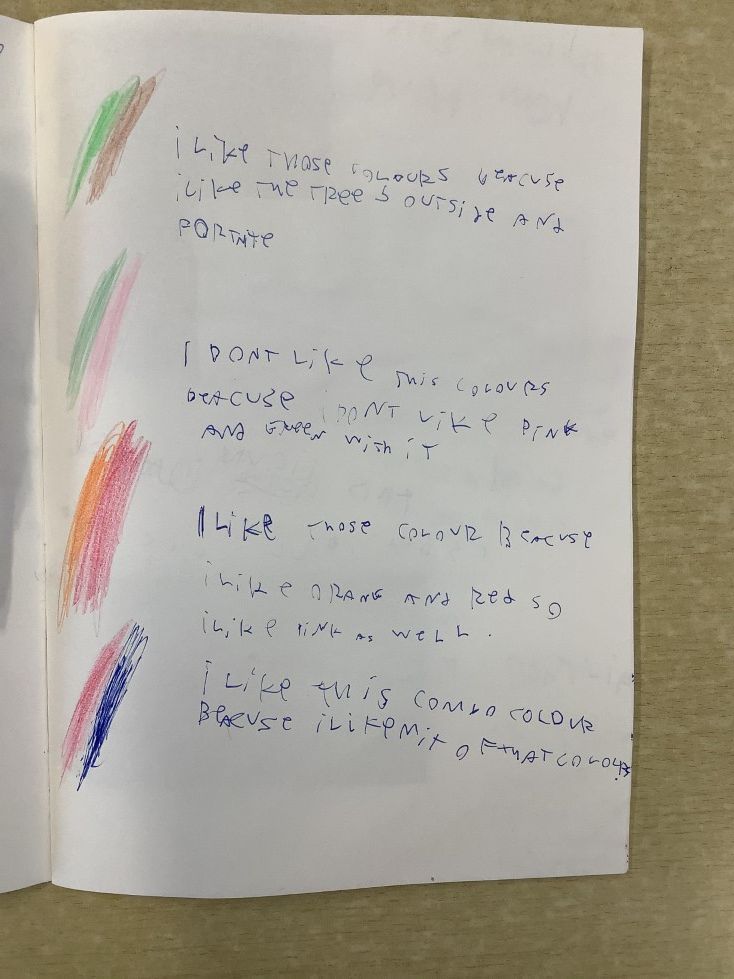 i Like THOSe COLOURS beACUSe
iLike THe TRee S OUTSide AND
FORTNTe
I DONT Like THis COLOURS
beACUSe i DONT Like PiNK
AND GReeN WiTH iT
I Like THOSe COLOUR BeACUSe
i Like ORANG AND Red SO
i Like PiNK AS WeLL.
i Like THiS COMBO COLOUR
BeACUSe i Like MiX OF THAT COLOURS